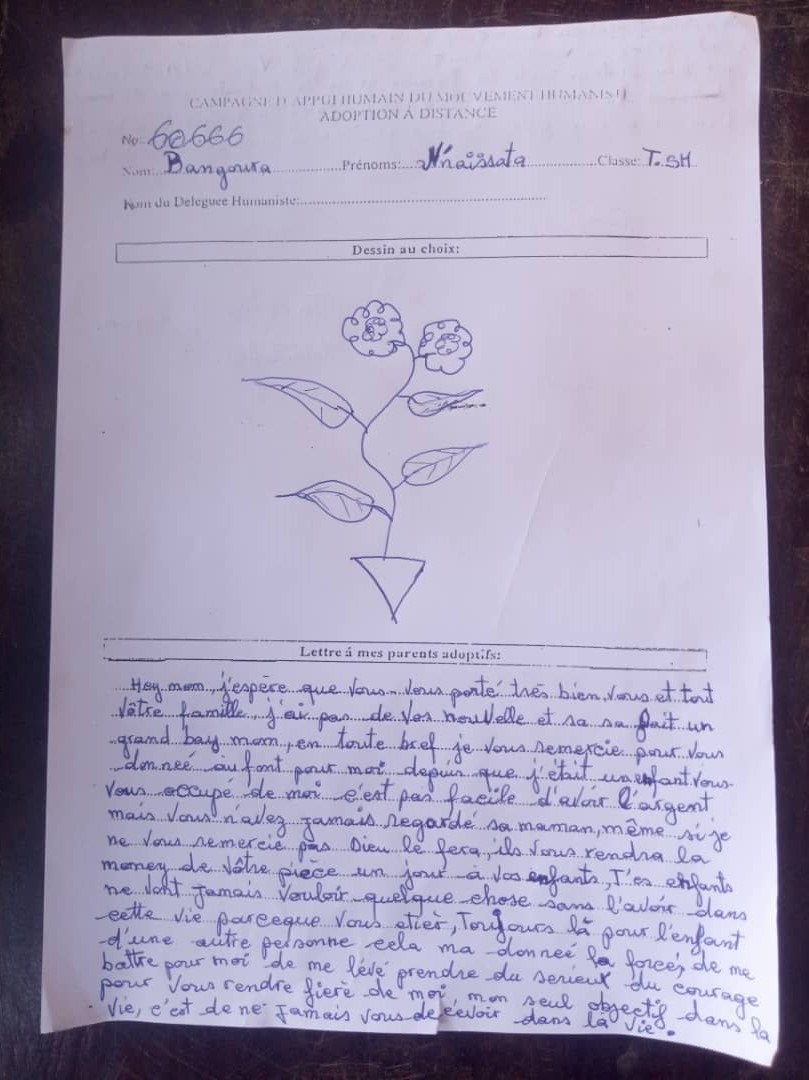 CAMPAGNE D'APPUI HUMAIN DU MOUVEMENT HUMANISTE
ADOPTION À DISTANCE
No: 60666
Nom: Bangoura Prénoms: N'naïssata Classe: T.SM
Nom du Deleguee Humaniste:
Dessin au choix:
Lettre á mes parents adoptifs:
Hey mom, j'espère que Vous Vous porté très bien, Vous et tout
Vôtre famille, j'ai pas de Vos nouvelle et sa sa fait un
grand bay mom, en toute bref je Vous remercie pour Vous
donneé au font pour moi depuis que j'était un enfant Vous
Vous occupé de moi c'est pas facile d'avoir l'argent
mais Vous n'avez jamais regardé sa maman, même si je
ne Vous remercie pas Dieu le fera, ils Vous rendra la
money de Vôtre pièce un jour à Vos enfants, T'es enfants
ne Vont Jamais Vouloir quelque chose sans l'avoir dans
cette vie parceque Vous etier, Toujours là pour l'enfant
d'une autre personne cela ma donneé la forces de me
battre pour moi de me lévé prendre du serieux du courage
pour Vous rendre fierè de moi, mon seul objectif dans la
Vie, c'est de ne Jamais Vous decevoir dans la Vie.